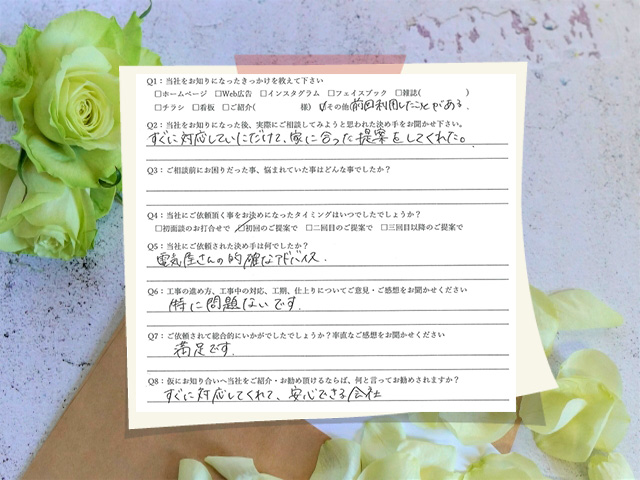 Q1：当社をお知りになったきっかけを教えて下さい
□ホームページ □Web広告 □インスタグラム □フェイスブック □雑誌( )
□チラシ □看板 □ご紹介( 様) ☑その他 前回利用したことがある。
Q2：当社をお知りになった後、実際にご相談してみようと思われた決め手をお聞かせ下さい。
すぐに対応していただけて、家に合った提案をしてくれた。
Q3：ご相談前にお困りだった事、悩まれていた事はどんな事でしたか？
Q4：当社にご依頼頂く事をお決めになったタイミングはいつでしたでしょうか？
□初面談のお打合せで ☑初回のご提案で □二回目のご提案で □三回目以降のご提案で
Q5：当社にご依頼された決め手は何でしたか？
電気屋さんの的確なアドバイス.
Q6：工事の進め方、工事中の対応、工期、仕上りについてご意見・ご感想をお聞かせください
特に問題ないです.
Q7：ご依頼されて総合的にいかがでしたでしょうか？率直なご感想をお聞かせください
満足です.
Q8：仮にお知り合いへ当社をご紹介・お勧め頂けるならば、何と言ってお勧めされますか？
すぐに対応してくれて、安心できる会社